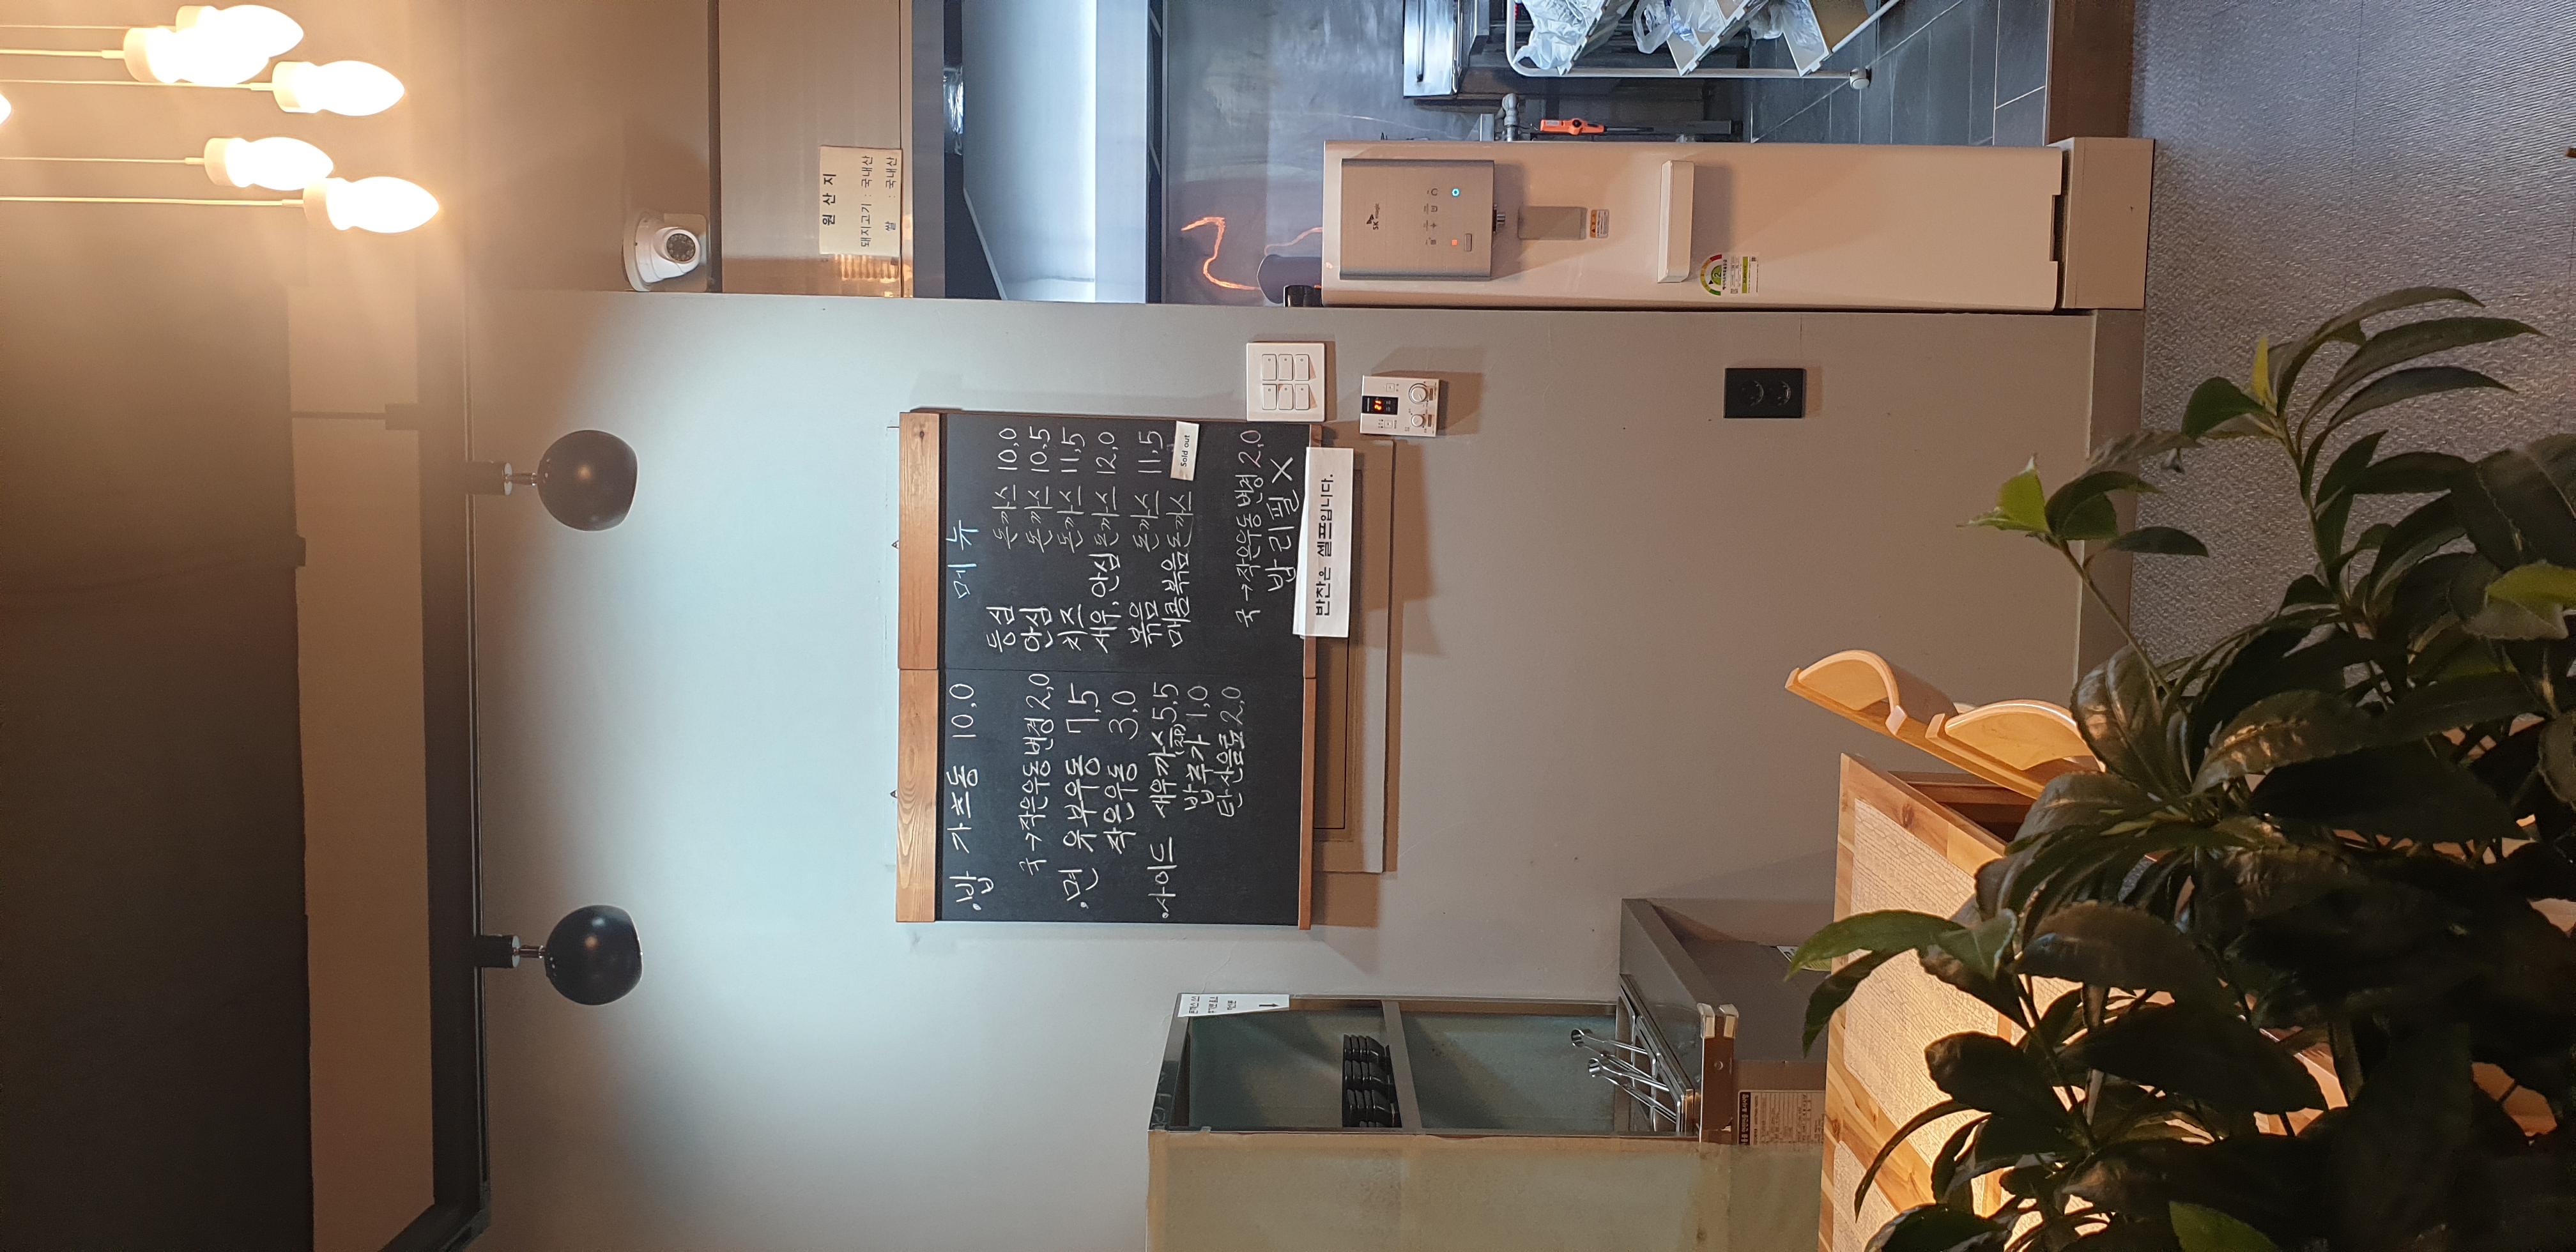 원 산 지
돼지고기 : 국내산
쌀 : 국내산
·밥 가츠동 10,0
국→작은우동 변경 2,0
·면 유부우동 7,5
작은우동 3,0
·사이드 새우까스 5,5
(2P)
밥추가 1,0
탄산음료 2,0
메뉴
등심 돈까스 10,0
안심 돈까스 10,5
치즈 돈까스 11,5
새우,안심돈까스 12,0
볶음 돈까스 11,5
매콤볶음돈까스 Sold out
국→작은우동 변경 2,0
밥 리필 X
반찬은 셀프입니다.
21
SK magic
2